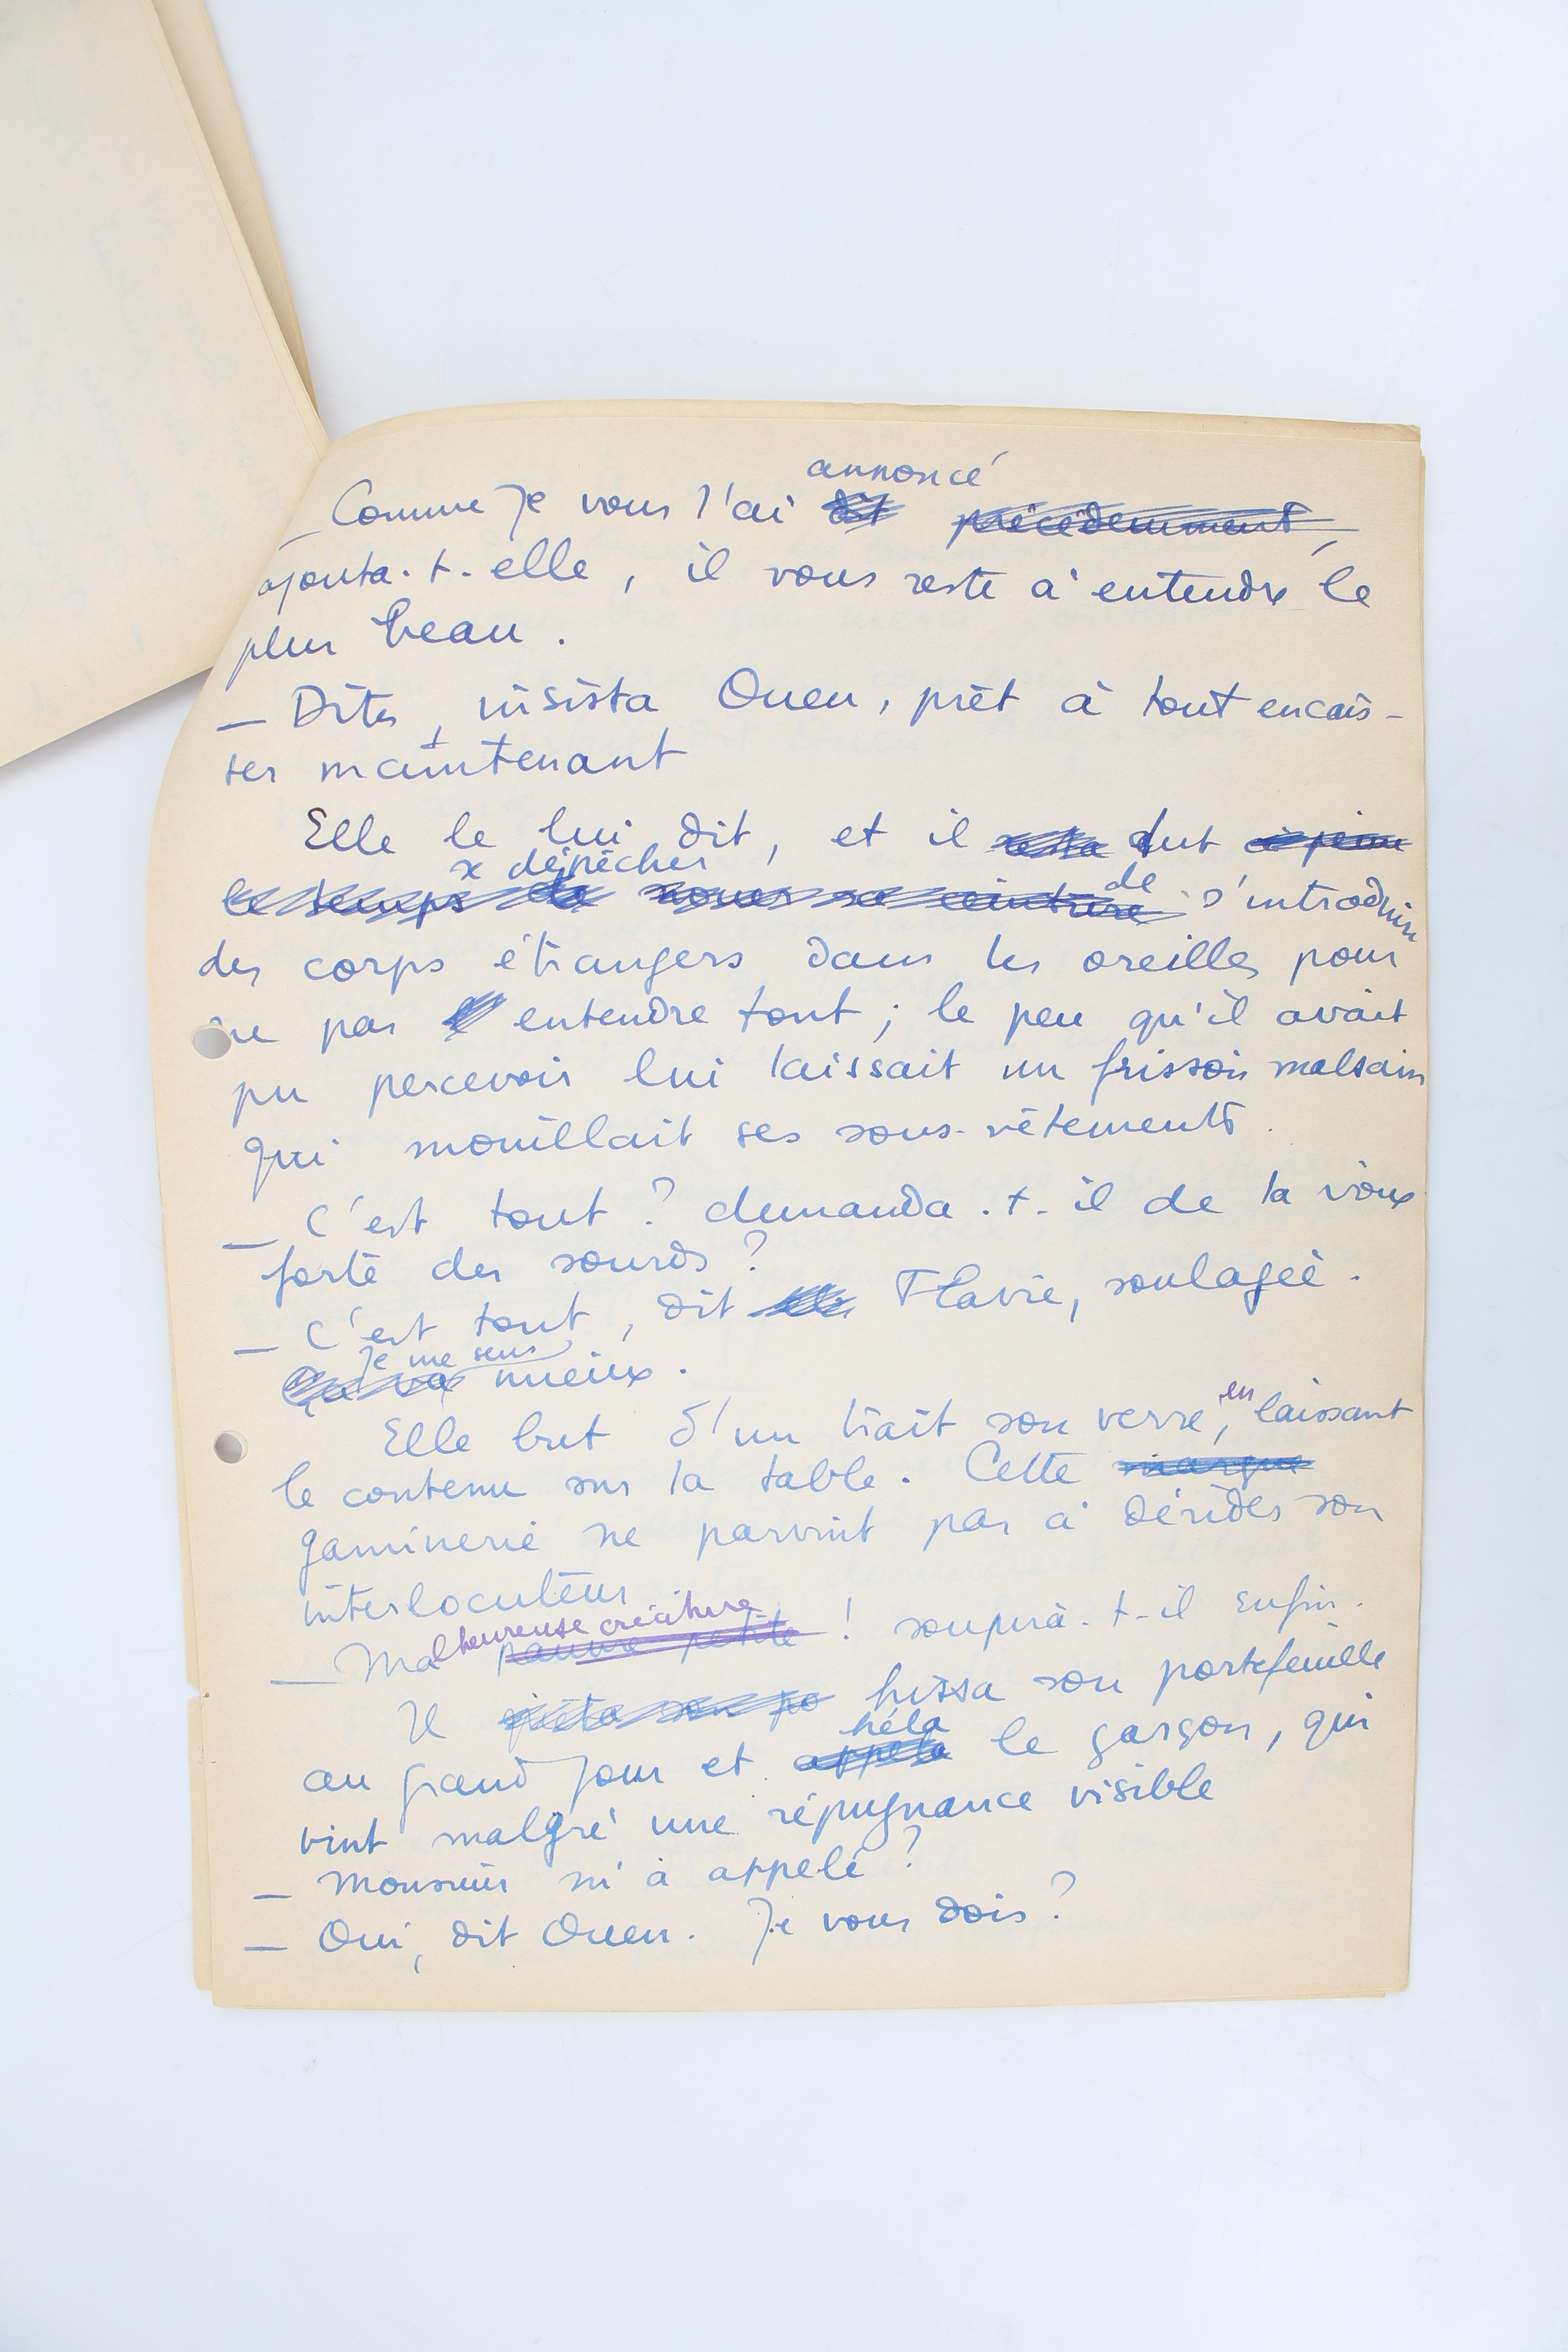 annoncé
— Comme je vous l'ai dit précédemment,
ajouta-t-elle, il vous reste à entendre le
plus beau.
— Dites, insista Ouen, prêt à tout encais-
ser maintenant
Elle le lui dit, et il resta dut à peine
se dépêcher de
le temps de nouer sa ceinture s'introduire
des corps étrangers dans les oreilles pour
ne pas entendre tout ; le peu qu'il avait
pu percevoir lui laissait un frisson malsain
qui mouillait ses sous-vêtements.
— C'est tout ? demanda-t-il de la voix
forte des sourds ?
— C'est tout, dit elle Flavie, soulagée.
Je me sens
Ça va mieux.
Elle but d'un trait son verre, en laissant
le contenu sur la table. Cette marque
gaminerie ne parvint pas à dérider son
interlocuteur
lheureuse créature
— Ma pauvre petite ! soupira-t-il enfin.
Il jeta son po hissa son portefeuille
héla
au grand jour et appela le garçon, qui
vint malgré une répugnance visible
— Monsieur m'a appelé ?
— Oui, dit Ouen. Je vous dois ?